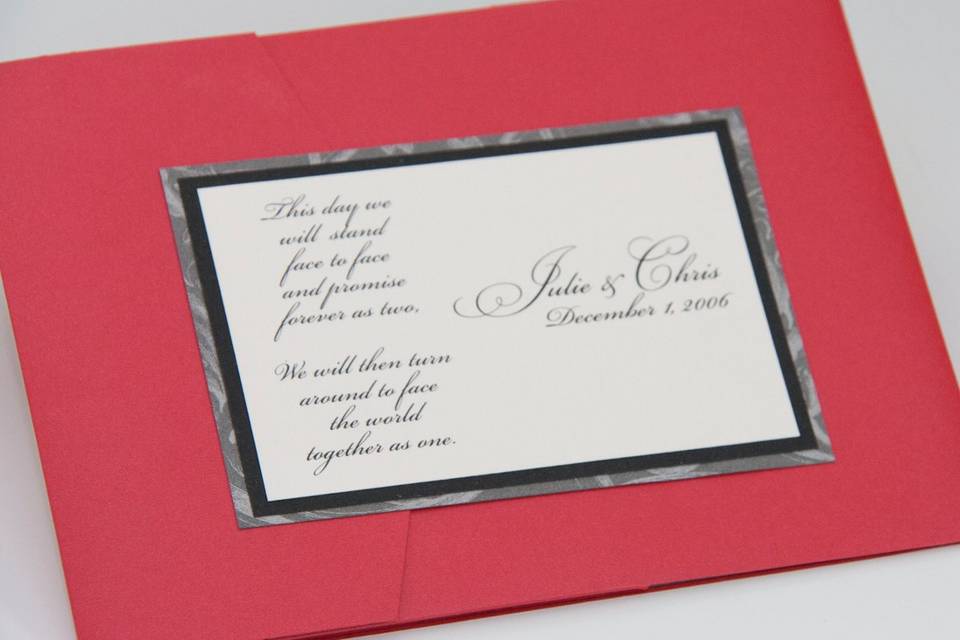 This day we
will stand
face to face
and promise
forever as two,
We will then turn
around to face
the world
together as one.
Julie & Chris
December 1, 2006